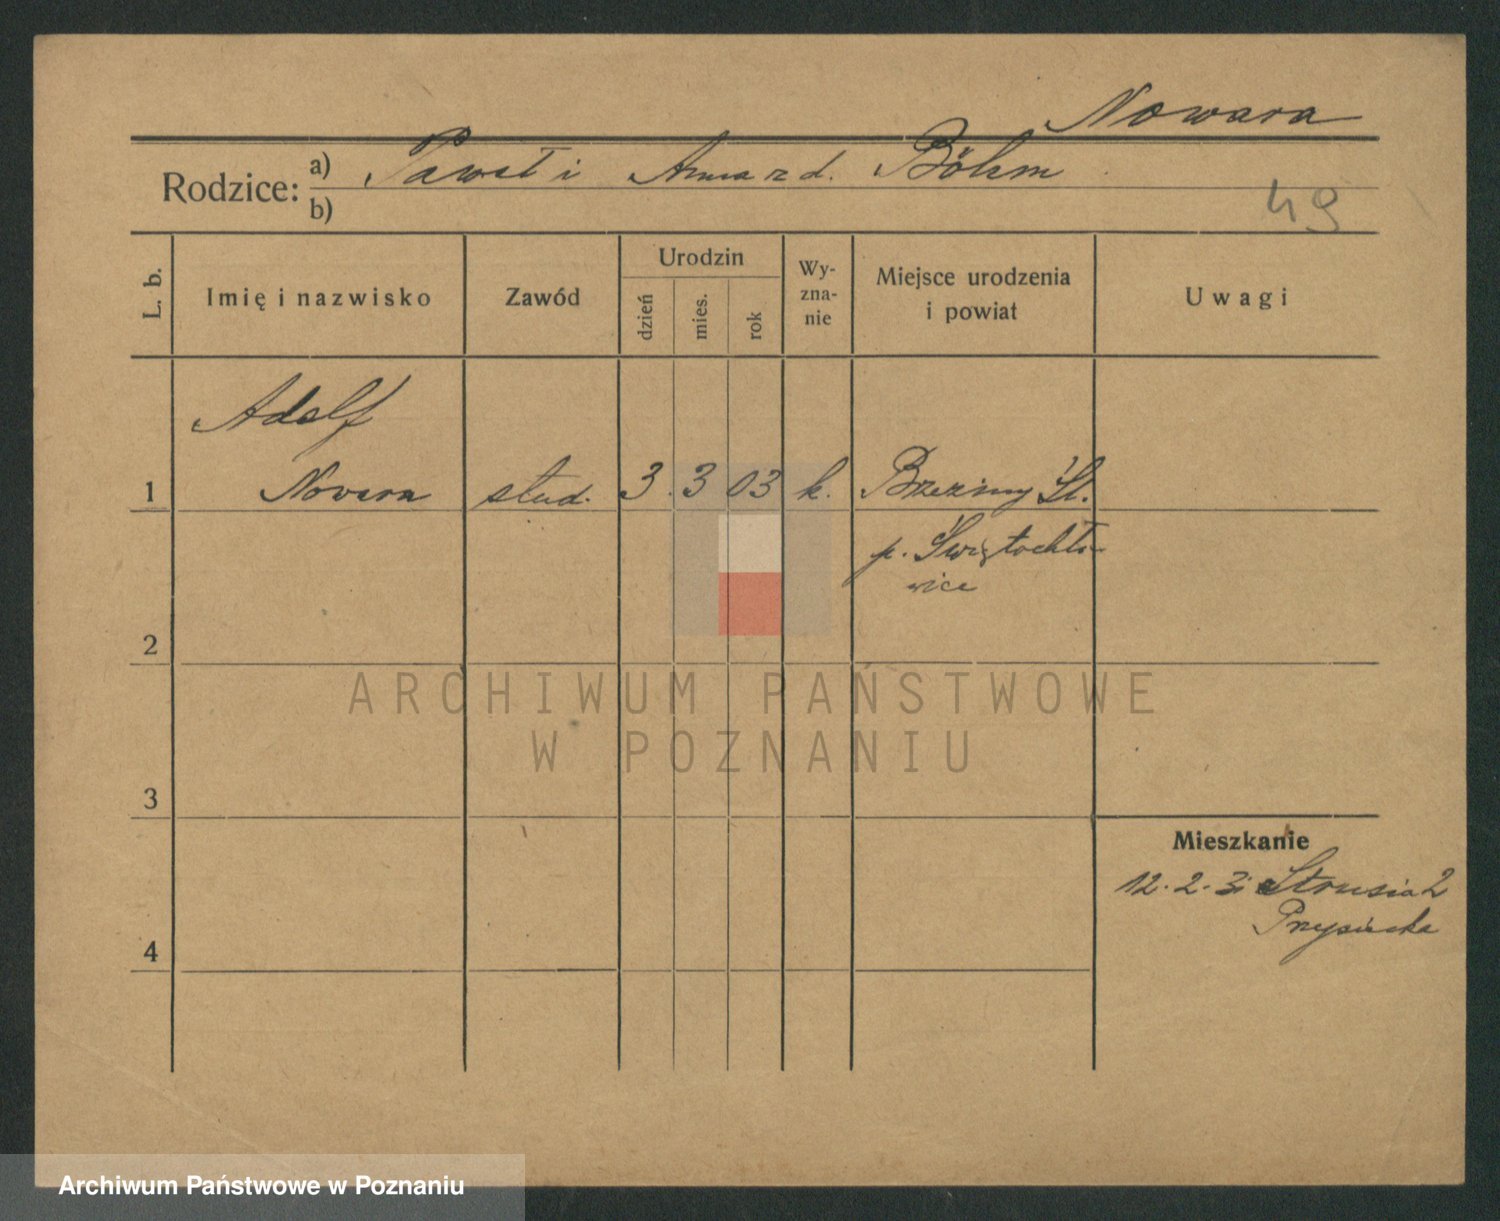 Nowara
Rodzice: a) Paweł i Anna z d. Böhm
b)
49
L. b. Imię i nazwisko Zawód Urodzin dzień mies. rok Wy-zna-nie Miejsce urodzenia i powiat Uwagi
Adolf
1 Nowara stud. 3. 3 03 k. Brzeziny Śl.
p. Świętochło-
wice
2
ARCHIWUM PAŃSTWOWE
W POZNANIU
3
Mieszkanie
12.2.31 Strusia 2
4
Archiwum Państwowe w Poznaniu